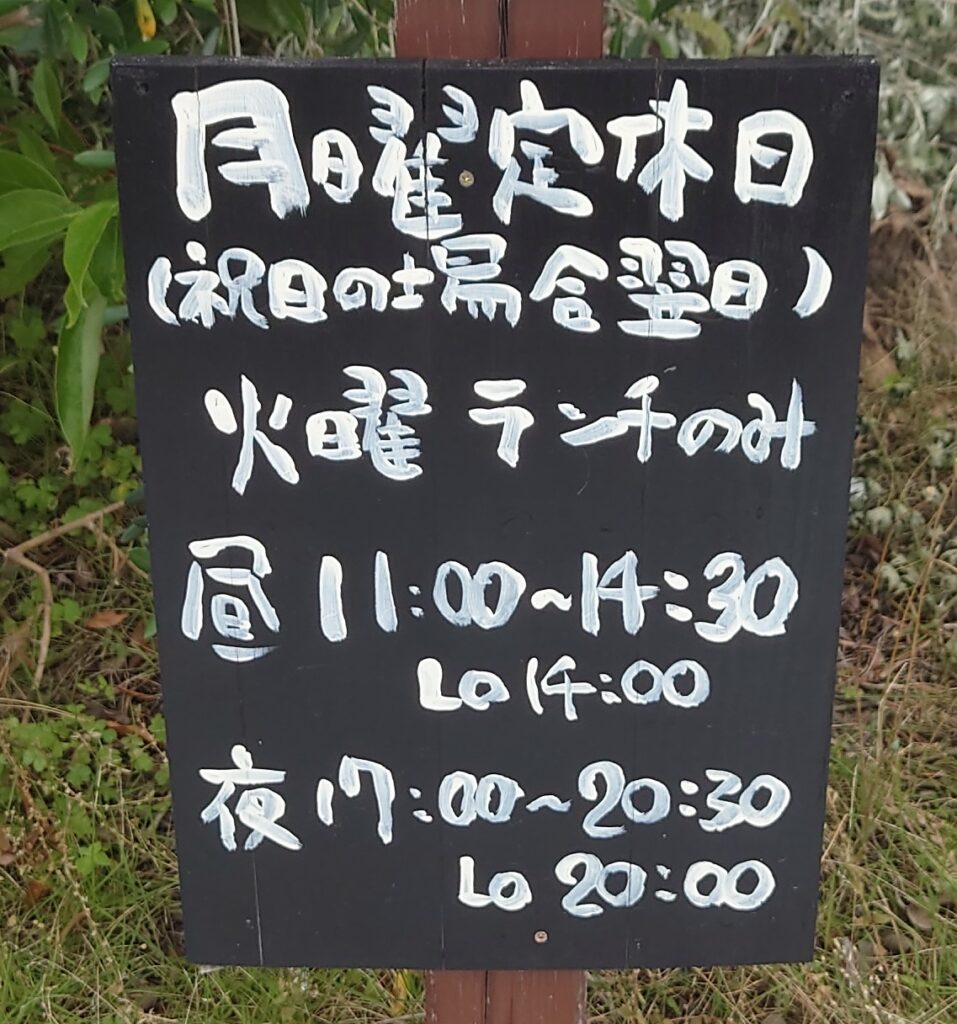 月曜定休日
(祝日の場合翌日)
火曜 ランチのみ
昼 11:00~14:30
Lo 14:00
夜 17:00~20:30
Lo 20:00